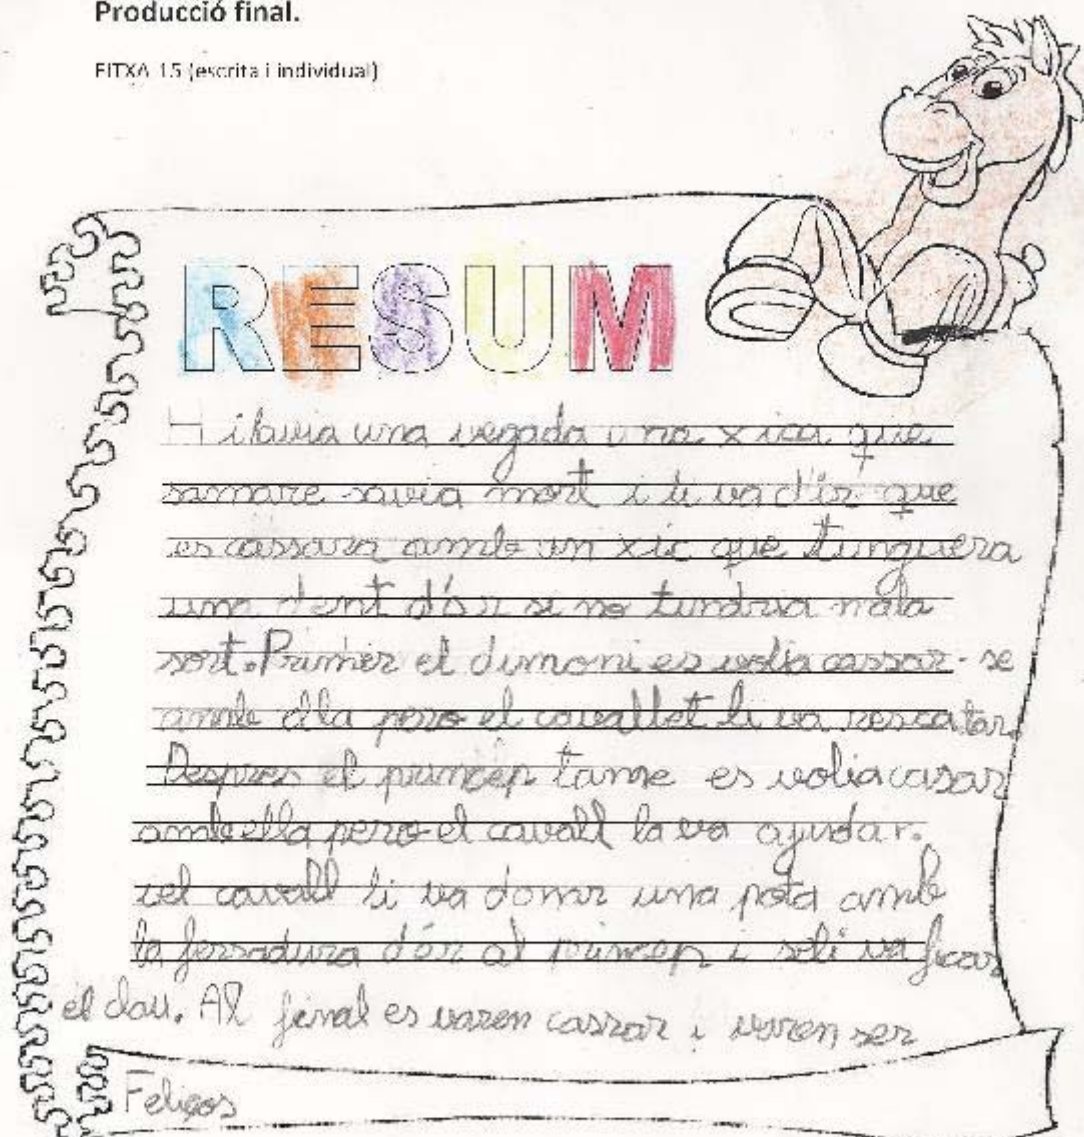 Producció final.
FITXA 15 (escrita i individual)
RESUM
Hi havia una vegada una xica que
samare savia mort i li va d'ir que
es cassara amb un xic que tinguera
una dent d'ór si no tindria mala
sort. Primer el dimoni es volia cassar-se
amb ella pero el cavallet li va rescatar.
Despres el princep tame es volia casar
amb ella pero el cavall la va ajudar.
i el cavall li va donar una pota amb
la ferradura d'ór al princep i seli va ficar
el clau. Al final es varen cassar i varen ser
Feliços